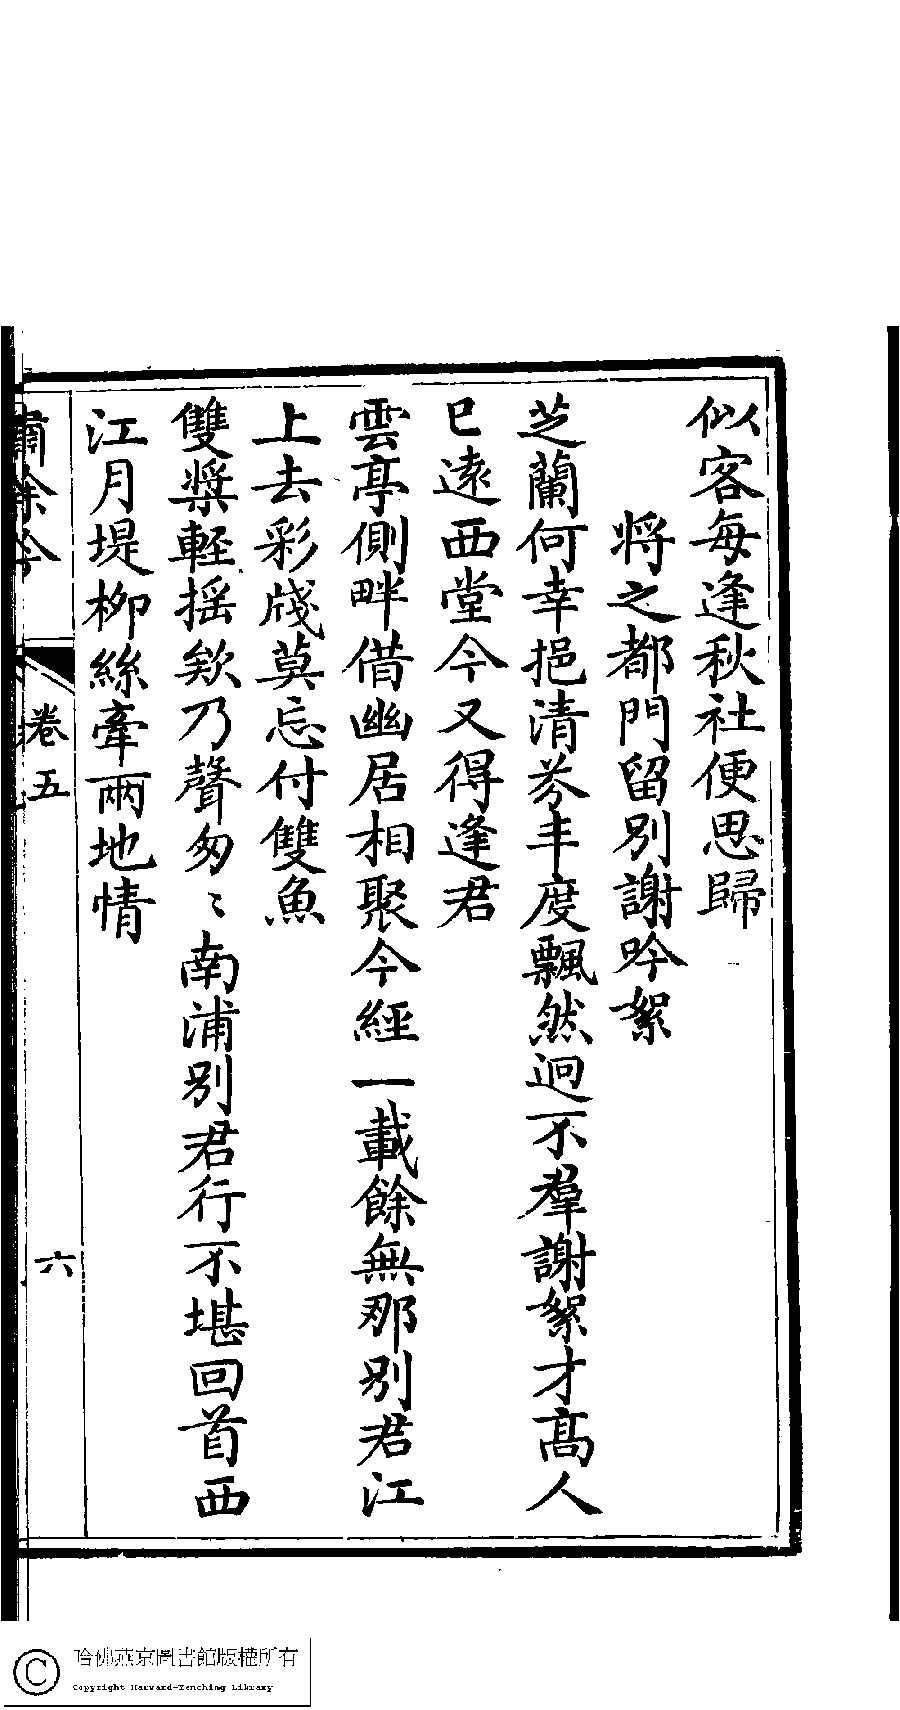 似客每逢秋社便思歸
將之都門留別謝吟絮
芝蘭何幸挹清芬丰度飄然迥不羣謝絮才高人
已遠西堂今又得逢君
雲亭側畔借幽居相聚今經一載餘無那別君江
上去彩牋莫忘付雙魚
雙槳輕搖欸乃聲匆〻南浦別君行不堪回首西
江月堤柳絲牽兩地情
餘吟
卷五
六
哈佛燕京圖書館版權所有
Copyright Harvard-Yenching Library